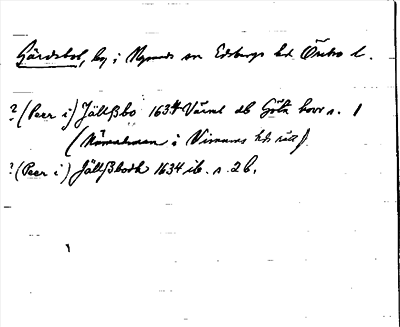 Gärdsbol, by i Nysunds sn Edsbergs hd Örebro l.
? (Peer i) Jällßbo 1634 Värml db Göta hovr s. 1
(Nämndeman i Visnums hds rätt).
? (Peer i) Jällßbodh 1634 ib. s. 26.